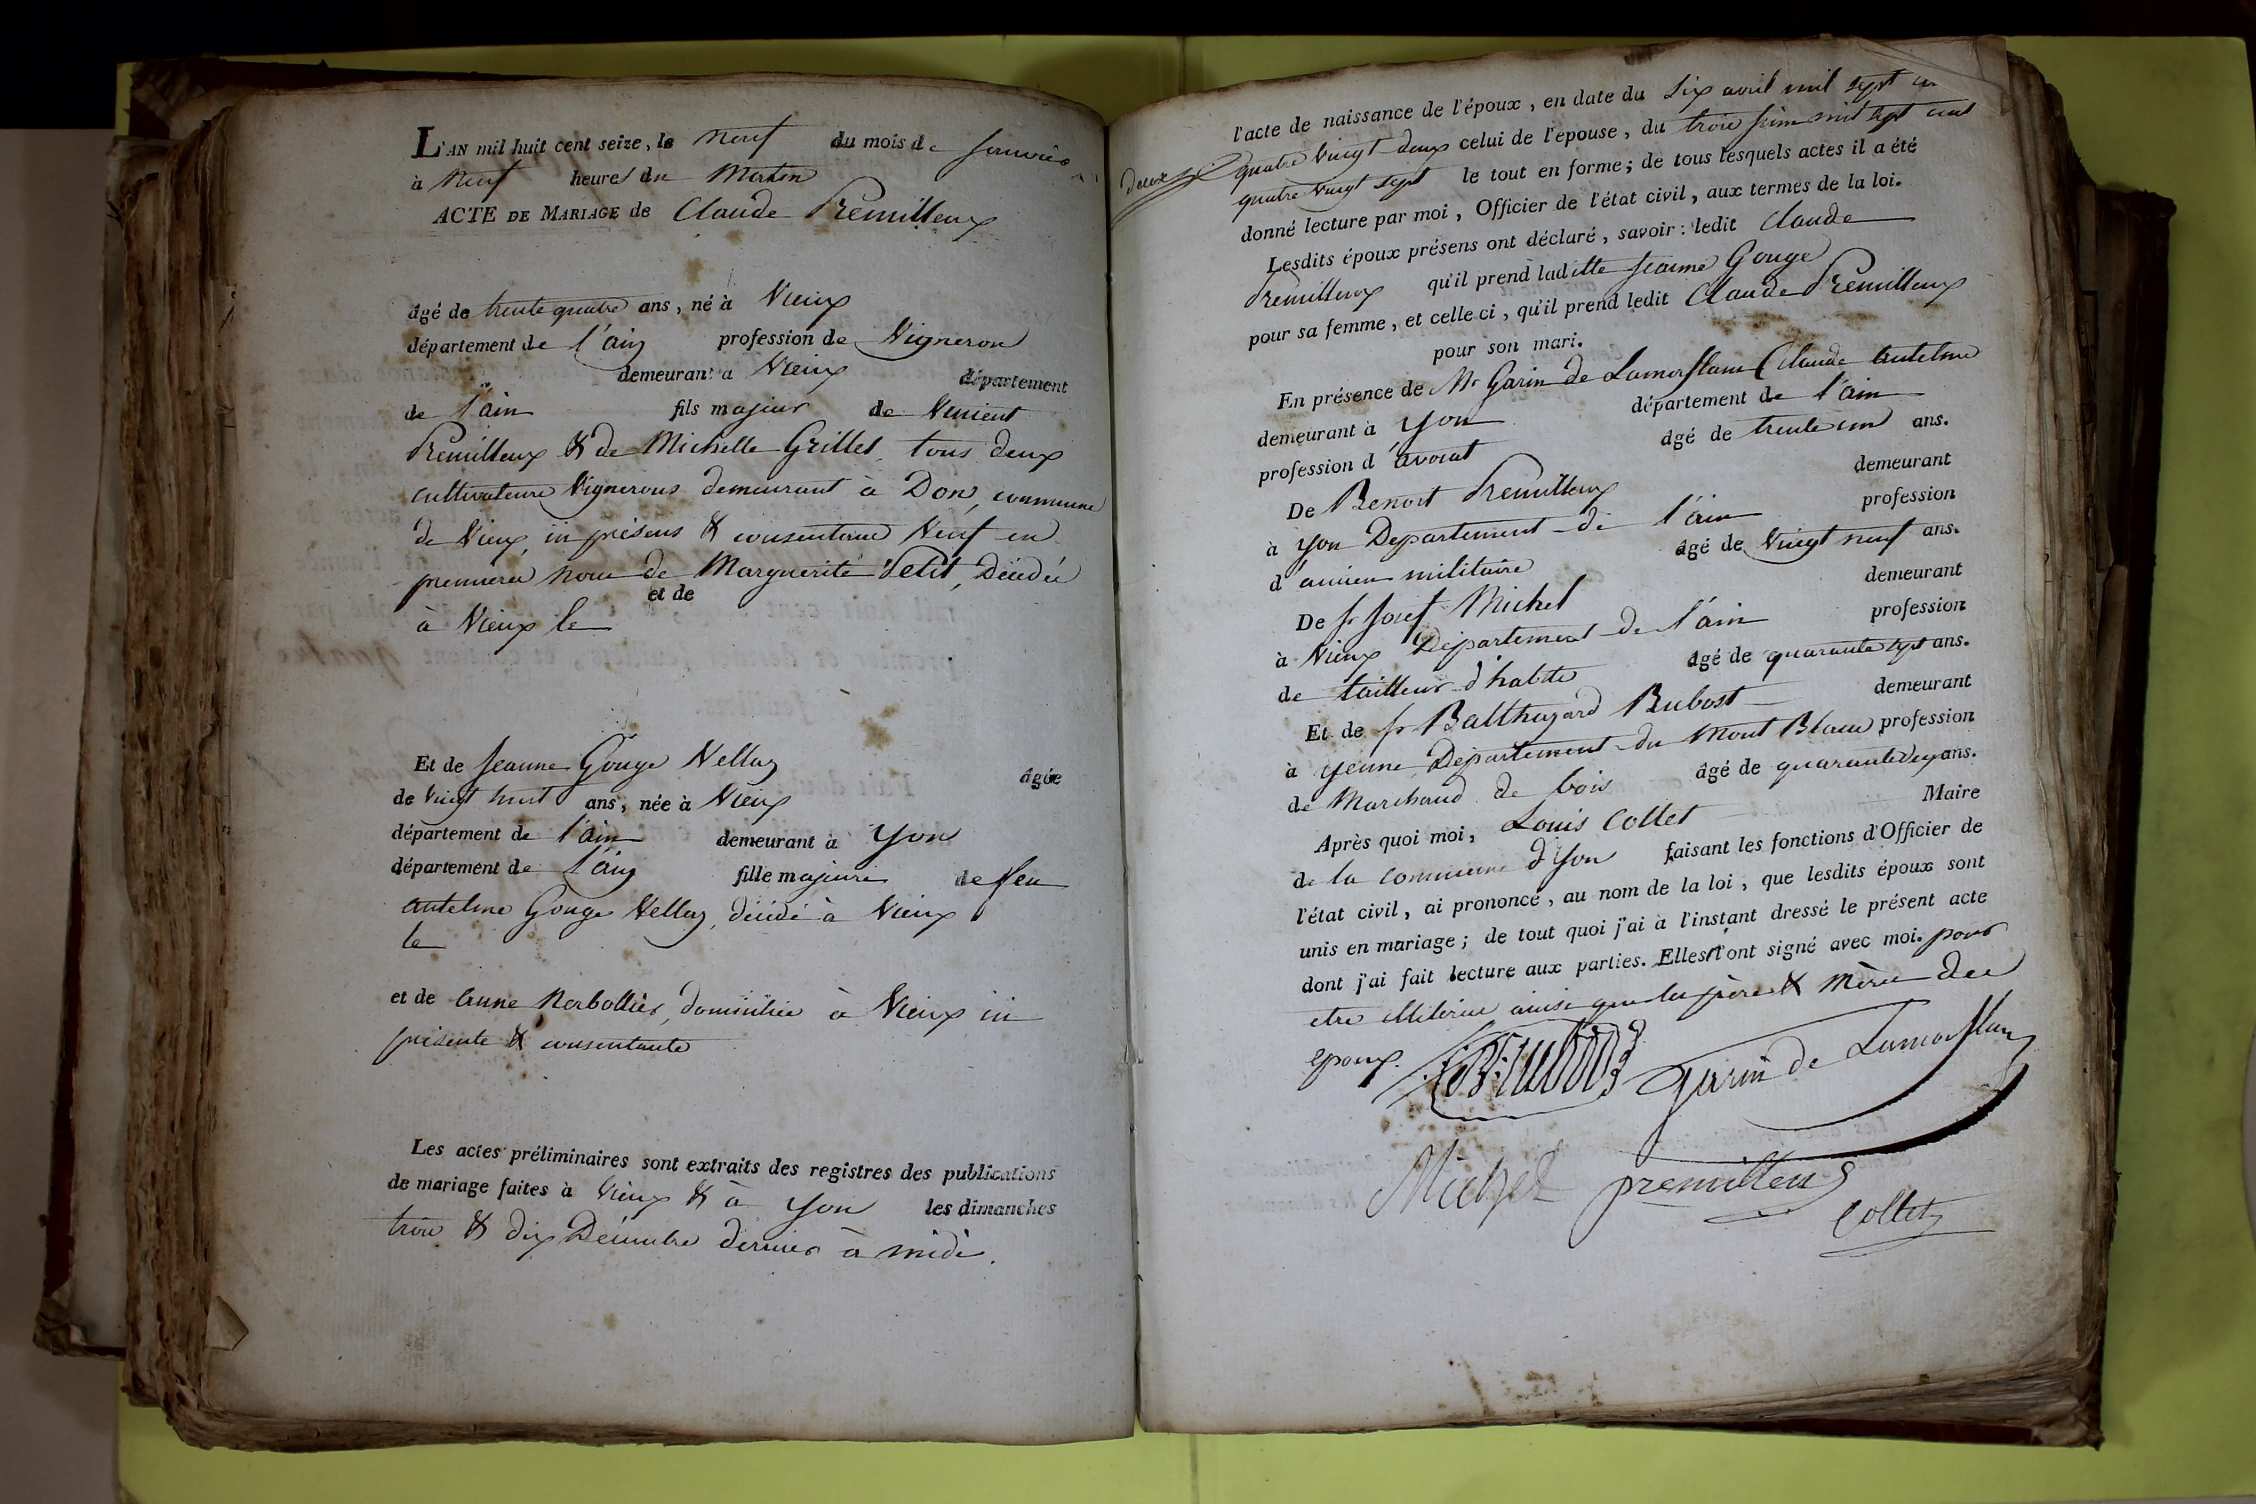 L'AN mil huit cent seize, le neuf du mois de Janvier
à neuf heures du Matin
ACTE DE MARIAGE de Claude Premilleux
âgé de trente quatre ans, né à Vieux
département de l'ain profession de Vigneron
demeurant à Vieux département
de l'ain fils majeur de Vincent
Premilleux & de Michelle Grillet, tous deux
cultivateurs Vignerons demeurant à Don, commune
de Vieux, ici présens & consentans Veuf en
premieres noces de Marguerite Petit, Décédée
et de
à Vieux le
Et de Jeanne Gouge Vellaz âgée
de vingt huit ans, née à Vieux
département de l'ain demeurant à Yon
département de l'ain fille majeure de feu
antelme Gouge Vellaz, décédé à Vieux
le
et de anne Norbollier, domiciliée à Vieux ici
présente & consentante
Les actes préliminaires sont extraits des registres des publications
de mariage faites à Vieux & à Yon les dimanches
trois & dix Décembre dernier à midi.
l'acte de naissance de l'époux, en date du six avril mil sept cent
quatre vingt deux celui de l'epouse, du trois juin mil sept cent
quatre vingt sept le tout en forme; de tous lesquels actes il a été
donné lecture par moi, Officier de l'état civil, aux termes de la loi.
Lesdits époux présens ont déclaré, savoir: ledit Claude
Premilleux qu'il prend ladite Jeanne Gouge
pour sa femme, et celle ci, qu'il prend ledit Claude Premilleux
pour son mari.
En présence de Mr Garin de Lamorflan Claude antelme
demeurant à Yon département de l'ain
profession d'avocat âgé de trente un ans.
De Benoit Premilleux demeurant
à Yon Departement de l'ain profession
d'ancien militaire âgé de vingt neuf ans.
De sr Josef Michel demeurant
à Vieux Département de l'ain profession
de tailleur d'habits âgé de quarante sept ans.
Et de sr Balthazard Rubost demeurant
à yenne Département du Mont Blanc profession
de Marchand de bois âgé de quarante deux ans.
Après quoi moi, Louis Collet Maire
de la commune d'Yon faisant les fonctions d'Officier de
l'état civil, ai prononcé, au nom de la loi, que lesdits époux sont
unis en mariage; de tout quoi j'ai à l'instant dressé le présent acte
dont j'ai fait lecture aux parties. Elles ont signé avec moi. pour
etre illiterés ainsi que les père & Mère des
epoux.
Garin de Lamorflan
Michel premilleux
Collet